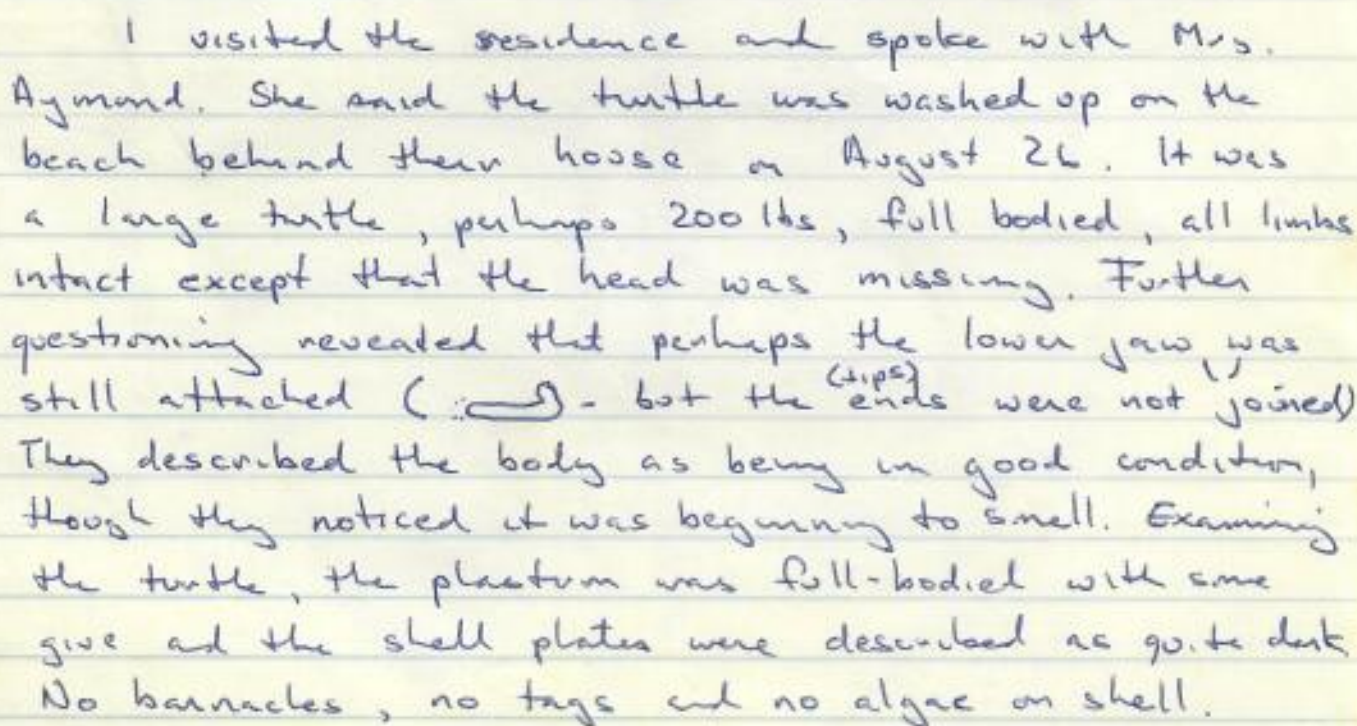 I visited the residence and spoke with Mrs.
Aymond. She said the turtle was washed up on the
beach behind their house on August 26. It was
a large turtle, perhaps 200 lbs, full bodied, all limbs
intact except that the head was missing. Further
questioning revealed that perhaps the lower jaw was
still attached ( - but the (tips) ends were not joined)
They described the body as being in good condition,
though they noticed it was beginning to smell. Examining
the turtle, the plastrum was full-bodied with some
give and the shell plates were described as quite dark
No barnacles, no tags and no algae on shell.